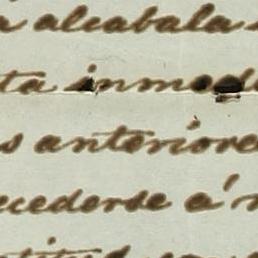 alcabala
ta inmed
s anteriore
ecederse á